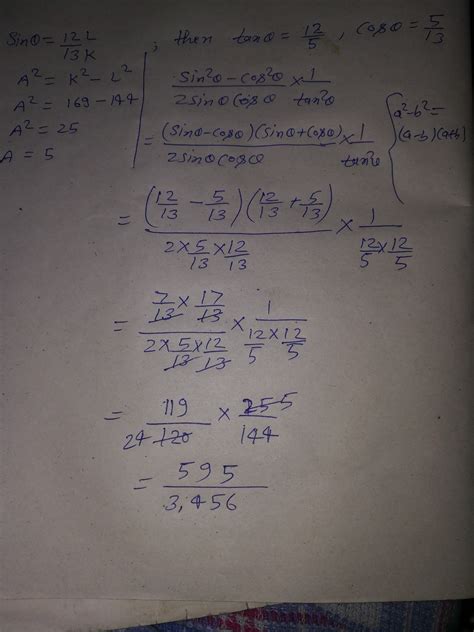 Sinθ = 12 L / 13 K ; then tanθ = 12/5 , Cosθ = 5/13
A² = K² - L²
A² = 169 - 144
A² = 25
A = 5
Sin²θ - Cos²θ / 2 Sinθ Cosθ × 1 / tan²θ
a² - b² = (a-b)(a+b)
= (Sinθ - Cosθ)(Sinθ + Cosθ) / 2 Sinθ Cosθ × 1 / tan²θ
= (12/13 - 5/13)(12/13 + 5/13) / 2 × 5/13 × 12/13 × 1 / 12/5 × 12/5
= 7/13 × 17/13 / 2 × 5/13 × 12/13 × 1 / 12/5 × 12/5
= 119 / 24 120 × 25 5 / 144
= 595 / 3,456